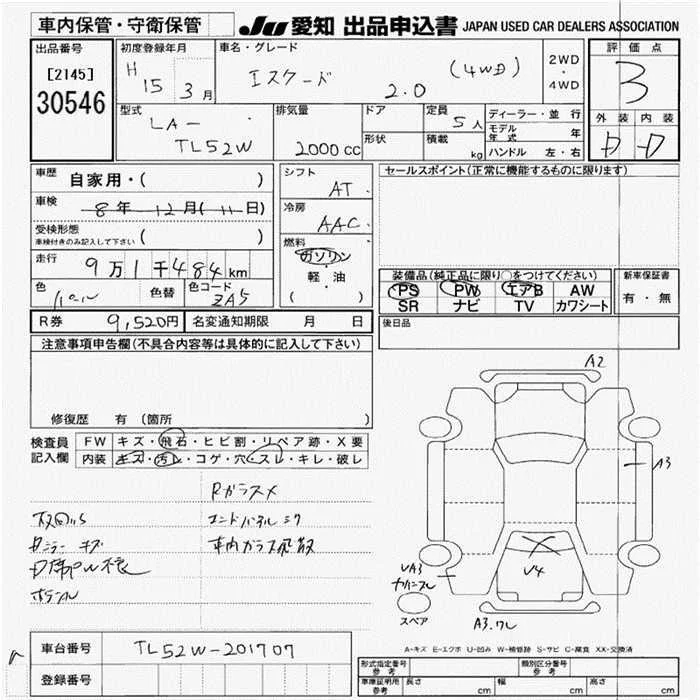 車内保管・守衛保管
JU 愛知 出品申込書 JAPAN USED CAR DEALERS ASSOCIATION
出品番号
[2145]
30546
初度登録年月
H 15 3月
車名・グレード
エスクード 2.0 (4WD)
2WD
・
4WD
評価点
3
外装 内装
D D
型式
LA-
TL52W
排気量
2000cc
ドア
形状
定員
5人
積載
kg
ディーラー・並行
モデル年式 年
ハンドル 左・右
車歴
自家用・( )
車検
8年12月(11日)
受検形態
車検付きのみ記入して下さい ( )
走行
9万1千484km
色
パール
色替
色コード
ZA5
シフト
AT
冷房
AAC
燃料
ガソリン
・
軽・油
( )
セールスポイント(正常に機能するものに限ります)
装備品(純正品に限り○をつけてください)
PS PW エアB AW
SR ナビ TV カワシート
新車保証書
有・無
R券 9,520円 名変通知期限 月 日
後日品
注意事項申告欄(不具合内容等は具体的に記入して下さい)
修復歴 有 (箇所 )
検査員
記入欄
FW キズ・飛石・ヒビ割・リペア跡・X要
内装 キズ・汚レ・コゲ・穴・スレ・キレ・破レ
Rガラスメ
キズ
車内ガラス飛散
A2
A3
V4
UA3
A3.ワレ
スペア
A-キズ E-エクボ U-凹み W-補修跡 S-サビ C-腐食 XX-交換済
車台番号 TL52W-201707
登録番号
型式指定番号
参考
類別区分番号
参考
車庫証明用
参考
長さ cm 幅 cm 高さ cm